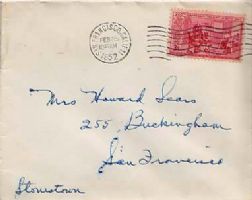 SAN FRANCISCO, CALIF.
FEB
1952
Mrs Howard Sears
255 Buckingham
San Fravenico
Stonestown